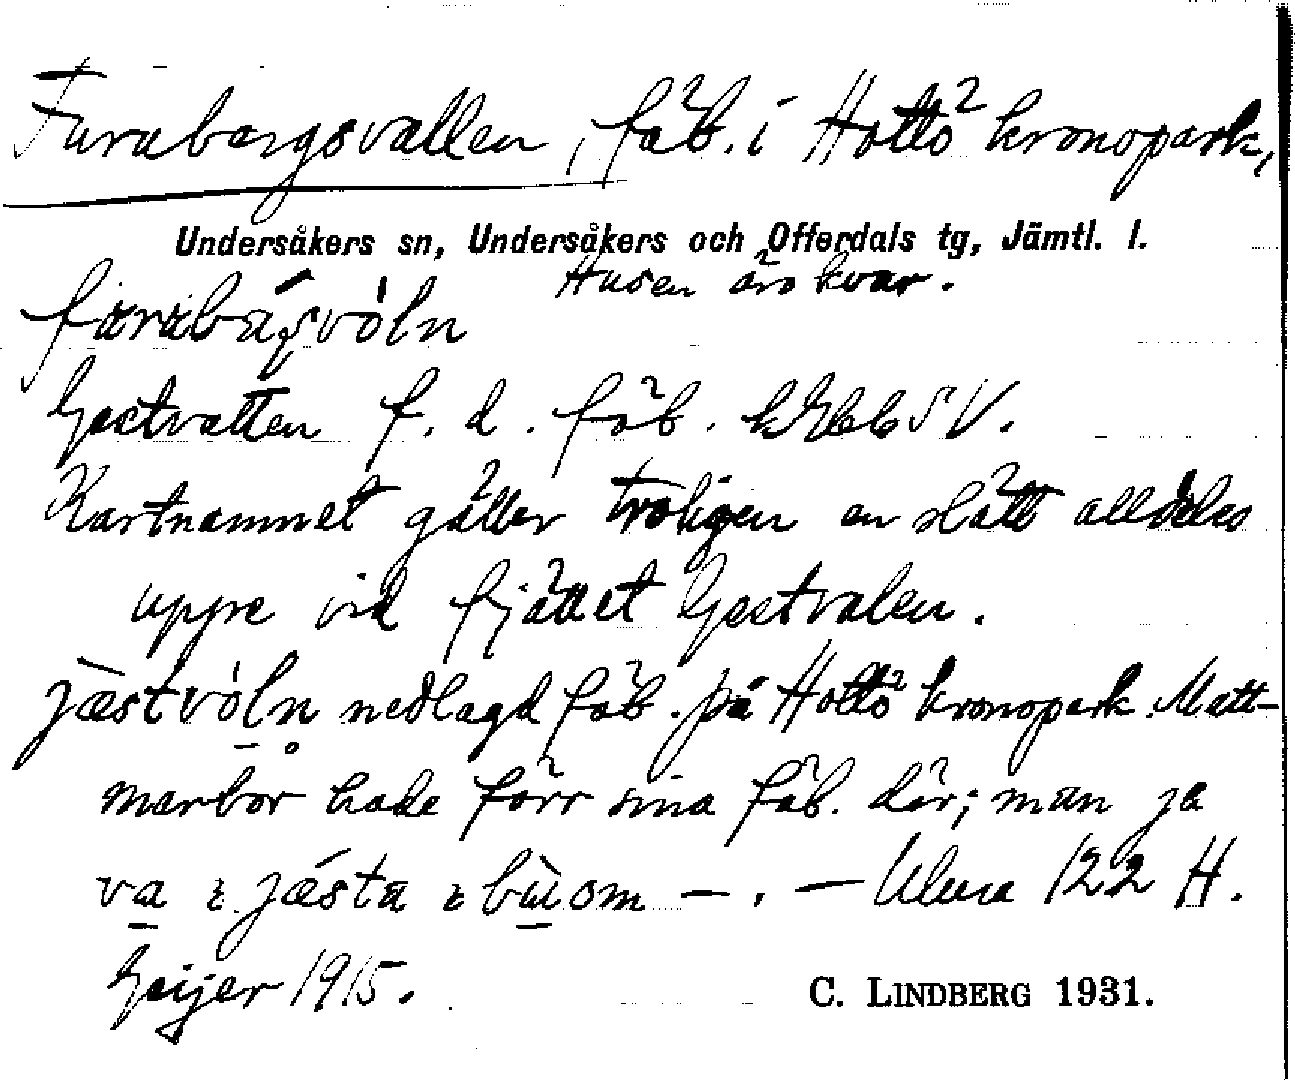 Furubergsvallen, fäb. i Hottö kronopark,
Undersåkers sn, Undersåkers och Offerdals tg, Jämtl. l.
Husen äro kvar.
Gestvallen f. d. fäb. SV.
Kartnamnet gäller troligen en slått alldeles
uppe vid fjället Gestvalen.
jæstvòln nedlagd fäb. på Hottö kronopark. Matt-
marbor hade förr sina fäb. där; man ja
va jǽsta bùom – . – Ulma 122 H.
Geijer 1915.
C. LINDBERG 1931.